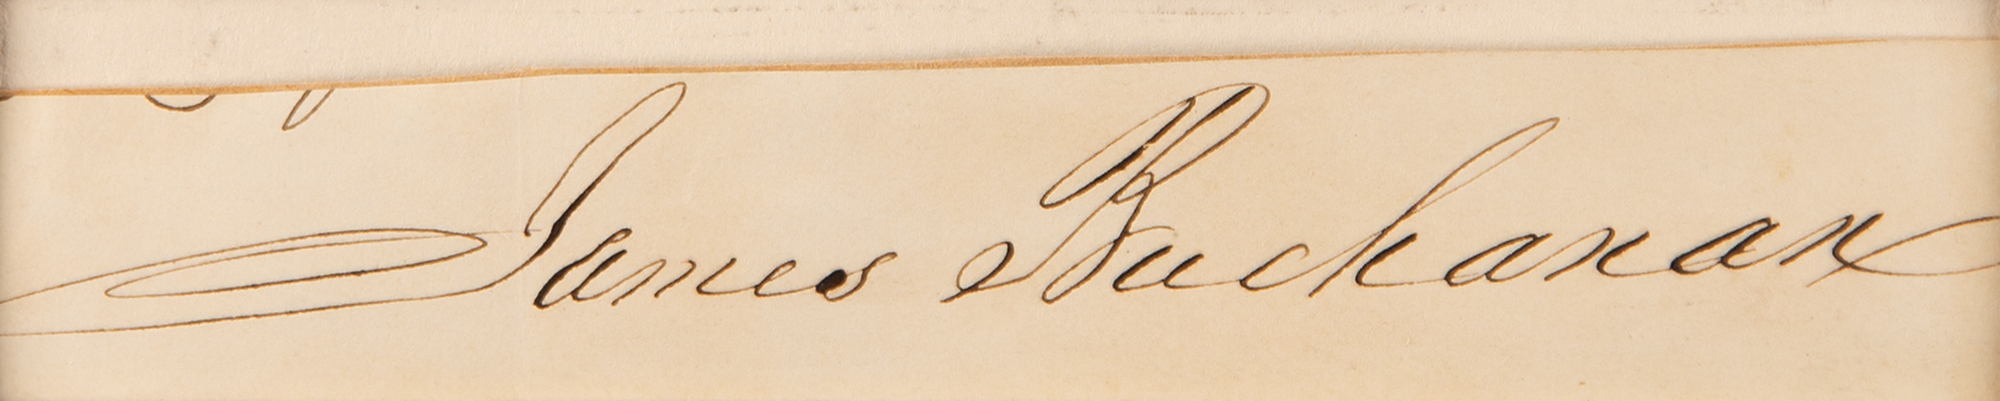 James Buchanan